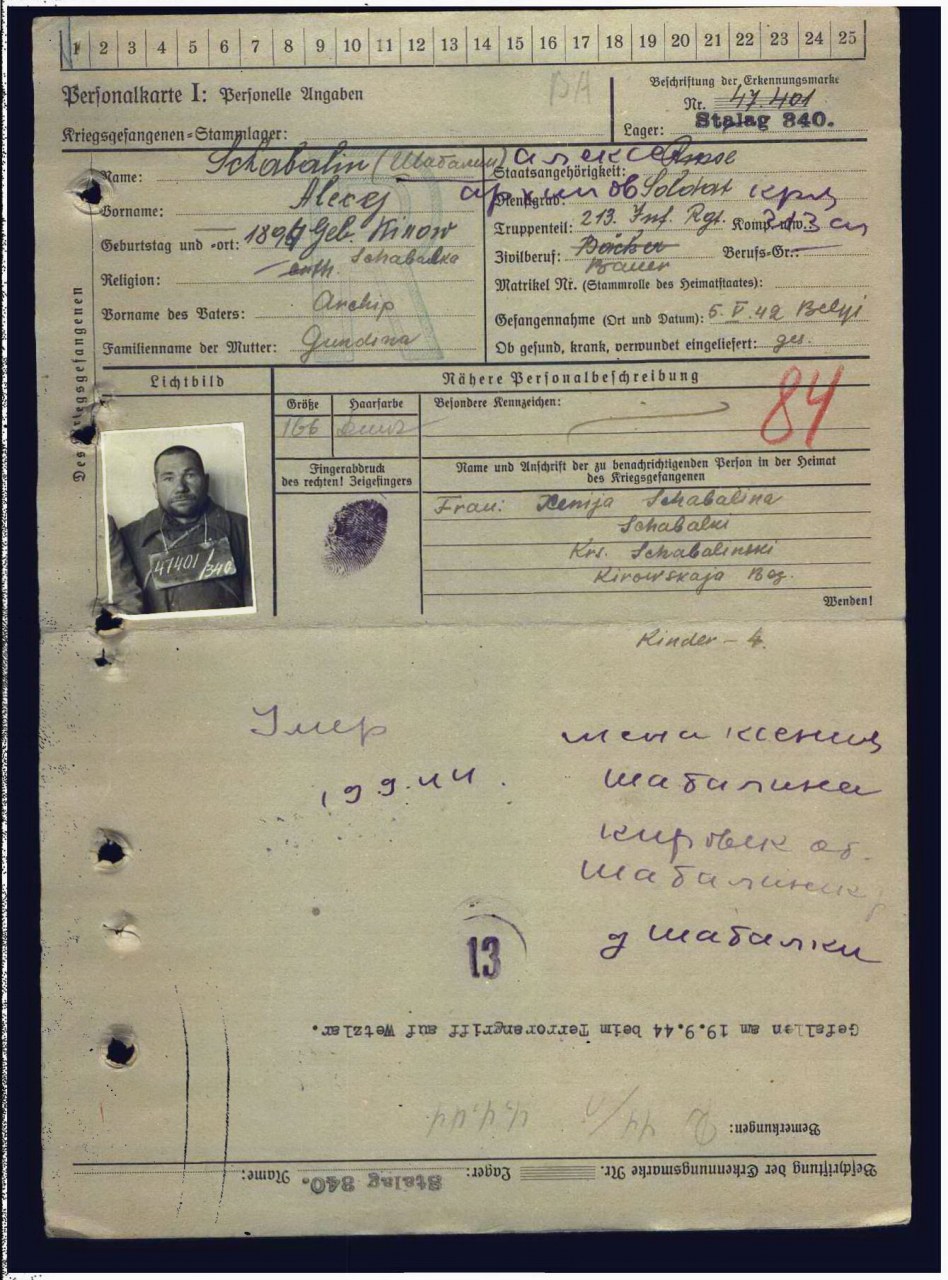 1 2 3 4 5 6 7 8 9 10 11 12 13 14 15 16 17 18 19 20 21 22 23 24 25
Personalkarte I: Personelle Angaben
BA
Kriegsgefangenen-Stammlager:
Beschriftung der Erkennungsmarke
Nr. 47.401
Lager: Stalag 340.
Des Kriegsgefangenen
Name: Schabalin (Шабалин)
Vorname: Alexej
Geburtstag und -ort: 1896 Geb. Kirow
Schabalka
Religion: orth.
Vorname des Vaters: Archip
Familienname der Mutter: Gundina
алексей
Staatsangehörigkeit: Russe
архипов
Dienstgrad: Soldat
Truppenteil: 213. Inf. Rgt. Komp. usw.: 213 сп
Zivilberuf: Bäcker Berufs-Gr.:
Bauer
Matrikel Nr. (Stammrolle des Heimatstaates):
Gefangennahme (Ort und Datum): 5.V.42 Belyi
Ob gesund, krank, verwundet eingeliefert: ges.
Lichtbild
47401/340
Nähere Personalbeschreibung
Größe
166
Haarfarbe
Besondere Kennzeichen:
84
Fingerabdruck
des rechten! Zeigefingers
Name und Anschrift der zu benachrichtigenden Person in der Heimat
des Kriegsgefangenen
Frau: Xenija Schabalina
Schabalki
Krs. Schabalinski
Kirowskaja Bez.
Wenden!
Kinder – 4.
Умер
19 9.44.
жена ксения
шабалина
кировск об.
Шабалинск р
д шабалки
13
Gefallen am 19.9.44 beim Terrorangriff auf Wetzlar.
Bemerkungen:
Beschriftung der Erkennungsmarke Nr. Lager: Stalag 340. Name: